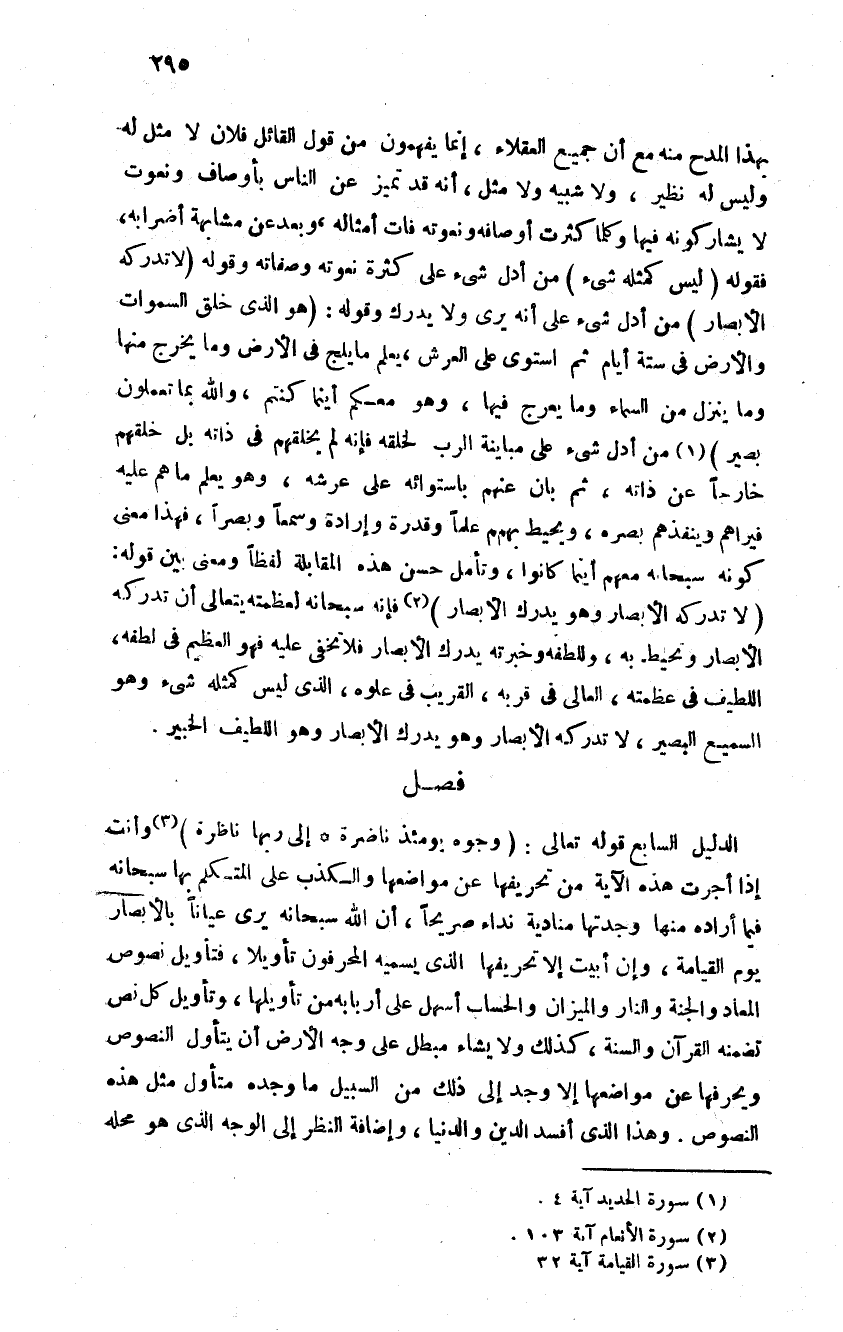 ٢٩٥
بهذا المدح منه مع أن جميع العقلاء ، إنما يفهمون من قول القائل فلان لا مثل له
وليس له نظير ، ولا شبيه ولا مثل ، أنه قد تميز عن الناس بأوصاف ونعوت
لا يشاركونه فيها وكلما كثرت أوصافه ونعوته فات أمثاله ، وبعد عن مشابهة أضرابه،
فقوله ( ليس كمثله شىء ) من أدل شىء على كثرة نعوته وصفاته وقوله (لا تدركه
الأبصار ) من أدل شىء على أنه يرى ولا يدرك وقوله : (هو الذى خلق السموات
والأرض فى ستة أيام ثم استوى على العرش ، يعلم ما يلج فى الأرض وما يخرج منها
وما ينزل من السماء وما يعرج فيها ، وهو معكم أينما كنتم ، والله بما تعملون
بصير )(١) من أدل شىء على مباينة الرب لخلقه فإنه لم يخلقهم فى ذاته بل خلقهم
خارجاً عن ذاته ، ثم بان عنهم باستوائه على عرشه ، وهو يعلم ما هم عليه
فيراهم وينفذهم بصره ، ويحيط بهم علماً وقدرة وإرادة وسمعاً وبصراً ، فهذا معنى
كونه سبحانه معهم أينما كانوا ، وتأمل حسن هذه المقابلة لفظاً ومعنى بين قوله:
( لا تدركه الأبصار وهو يدرك الأبصار )(٢) فإنه سبحانه لعظمته يتعالى أن تدركه
الأبصار وتحيط به ، وللطفه وخبرته يدرك الأبصار فلا تخفى عليه فهو العظيم فى لطفه،
اللطيف فى عظمته ، العالى فى قربه ، القريب فى علوه ، الذى ليس كمثله شىء وهو
السميع البصير ، لا تدركه الأبصار وهو يدرك الأبصار وهو اللطيف الخبير .
فصل
الدليل السابع قوله تعالى : ( وجوه يومئذ ناضرة * إلى ربها ناظرة )(٣) وأنت
إذا أجرت هذه الآية من تحريفها عن مواضعها والكذب على المتكلم بها سبحانه
فيما أراده منها وجدتها منادية نداء صريحاً ، أن الله سبحانه يرى عياناً بالأبصار
يوم القيامة ، وإن أبيت إلا تحريفها الذى يسميه المحرفون تأويلا ، فتأويل نصوص
المعاد والجنة والنار والميزان والحساب أسهل على أربابه من تأويلها ، وتأويل كل نص
تضمنه القرآن والسنة ، كذلك ولا يشاء مبطل على وجه الأرض أن يتأول النصوص
ويحرفها عن مواضعها إلا وجد إلى ذلك من السبيل ما وجده متأول مثل هذه
النصوص . وهذا الذى أفسد الدين والدنيا ، وإضافة النظر إلى الوجه الذى هو محله
(١) سورة الحديد آية ٤ .
(٢) سورة الأنعام آية ١٠٣ .
(٣) سورة القيامة آية ٣٢